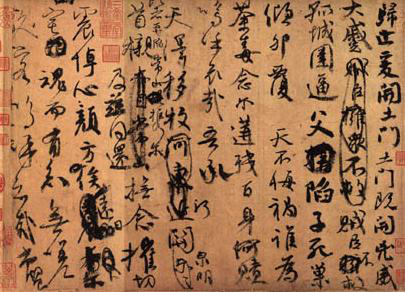 歸止爰開土門土門既開凶威
大蹙賊臣擁眾不救賊臣不救
孤城圍逼父陷子死巢
傾卵覆天不悔禍誰為
荼毒念爾遘殘百身何贖
嗚呼哀哉吾承
天澤移牧河關泉明
比者再陷常山攜爾
首櫬及茲同還撫念摧切
震悼心顏方俟遠日
宅魂而有知無嗟
久客嗚呼哀哉尚饗